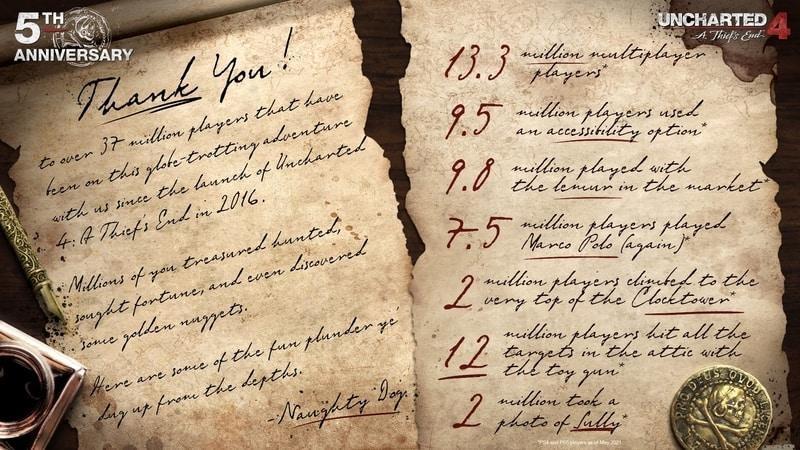 5TH
ANNIVERSARY
Thank You!
to over 37 million players that have
been on this globe-trotting adventure
with us since the launch of Uncharted
4: A Thief's End in 2016.
Millions of you treasured hunted,
sought fortune, and even discovered
some golden nuggets.
Here are some of the fun plunder ye'
dug up from the depths.
- Naughty Dog
UNCHARTED 4
A Thief's End
13.3 million multiplayer
players*
9.5 million players used
an accessibility option*
9.8 million played with
the lemur in the market*
7.5 million players played
Marco Polo (again)*
2 million players climbed to the
very top of the Clocktower*
12 million players hit all the
targets in the attic with
the toy gun*
2 million took a
photo of Sully*
*PS4 and PS5 players as of May 2021